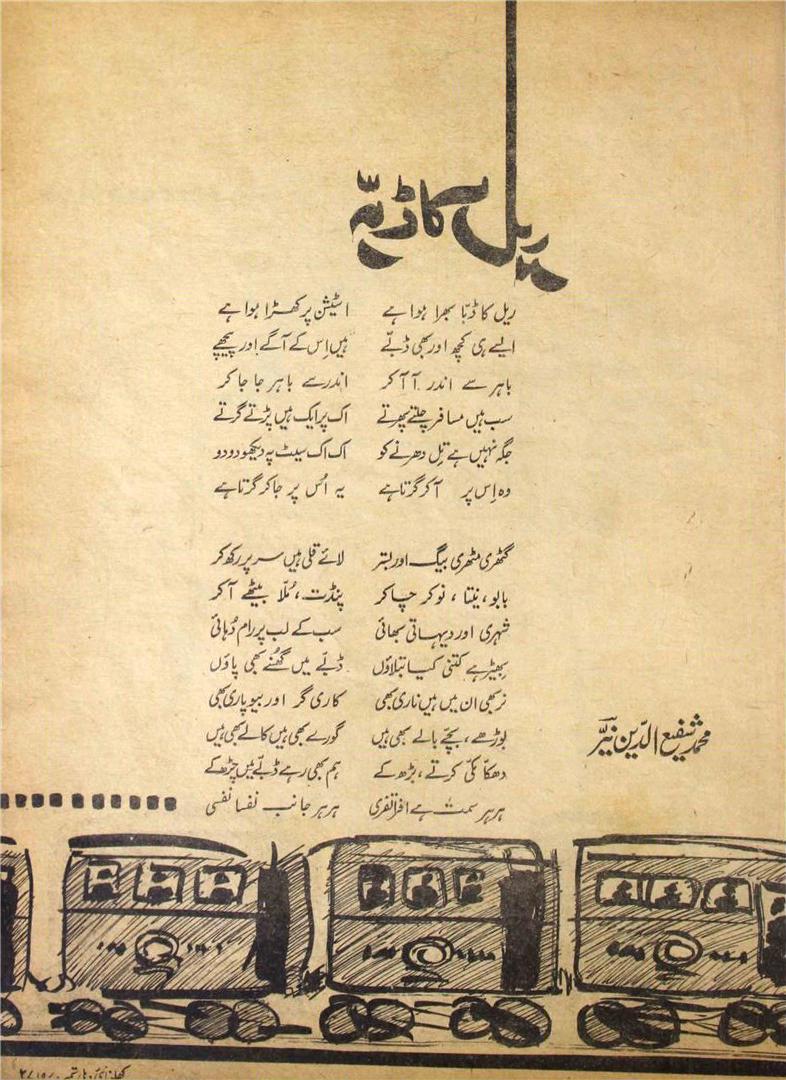 ریل کا ڈبّہ
ریل کا ڈبّا بھرا ہوا ہے اسٹیشن پر کھڑا ہوا ہے
ایسے ہی کچھ اور بھی ڈبّے ہیں اِس کے آگے اور پیچھے
باہر سے اندر آ آ کر اندر سے باہر جا جا کر
سب ہیں مسافر چلتے پھرتے اک پر ایک ہیں پڑتے گرتے
جگہ نہیں ہے تِل دھرنے کو اک اک سیٹ پہ دیکھو دو دو
وہ اِس پر آکر گرتا ہے یہ اُس پر جاکر گرتا ہے
گٹھری مٹھری بیگ اور بستر لائے قلی ہیں سر پر رکھ کر
بابو، نیتا، نوکر چاکر پنڈت، مُلّا بیٹھے آکر
شہری اور دیہاتی بھائی سب کے لب پر رام دُہائی
بھیڑ ہے کتنی کیا بتلاؤں ڈبّے میں گھُسنے بھی پاؤں
نر بھی ان میں ہیں ناری بھی کاری گر اور بیوپاری بھی
بوڑھے، بچّے بالے بھی ہیں گورے بھی ہیں کالے بھی ہیں
دھکّا مکّی کرتے، بڑھ کے ہم بھی رہے ڈبّے میں چڑھ کے
ہر ہر سمت ہے افراتفری ہر ہر جانب نفسا نفسی
محمد شفیع الدّین نیّر